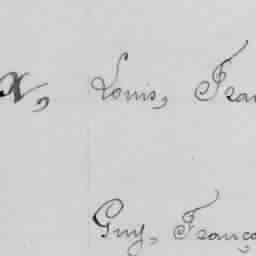 x, Louis, Fran
Guy, Franço